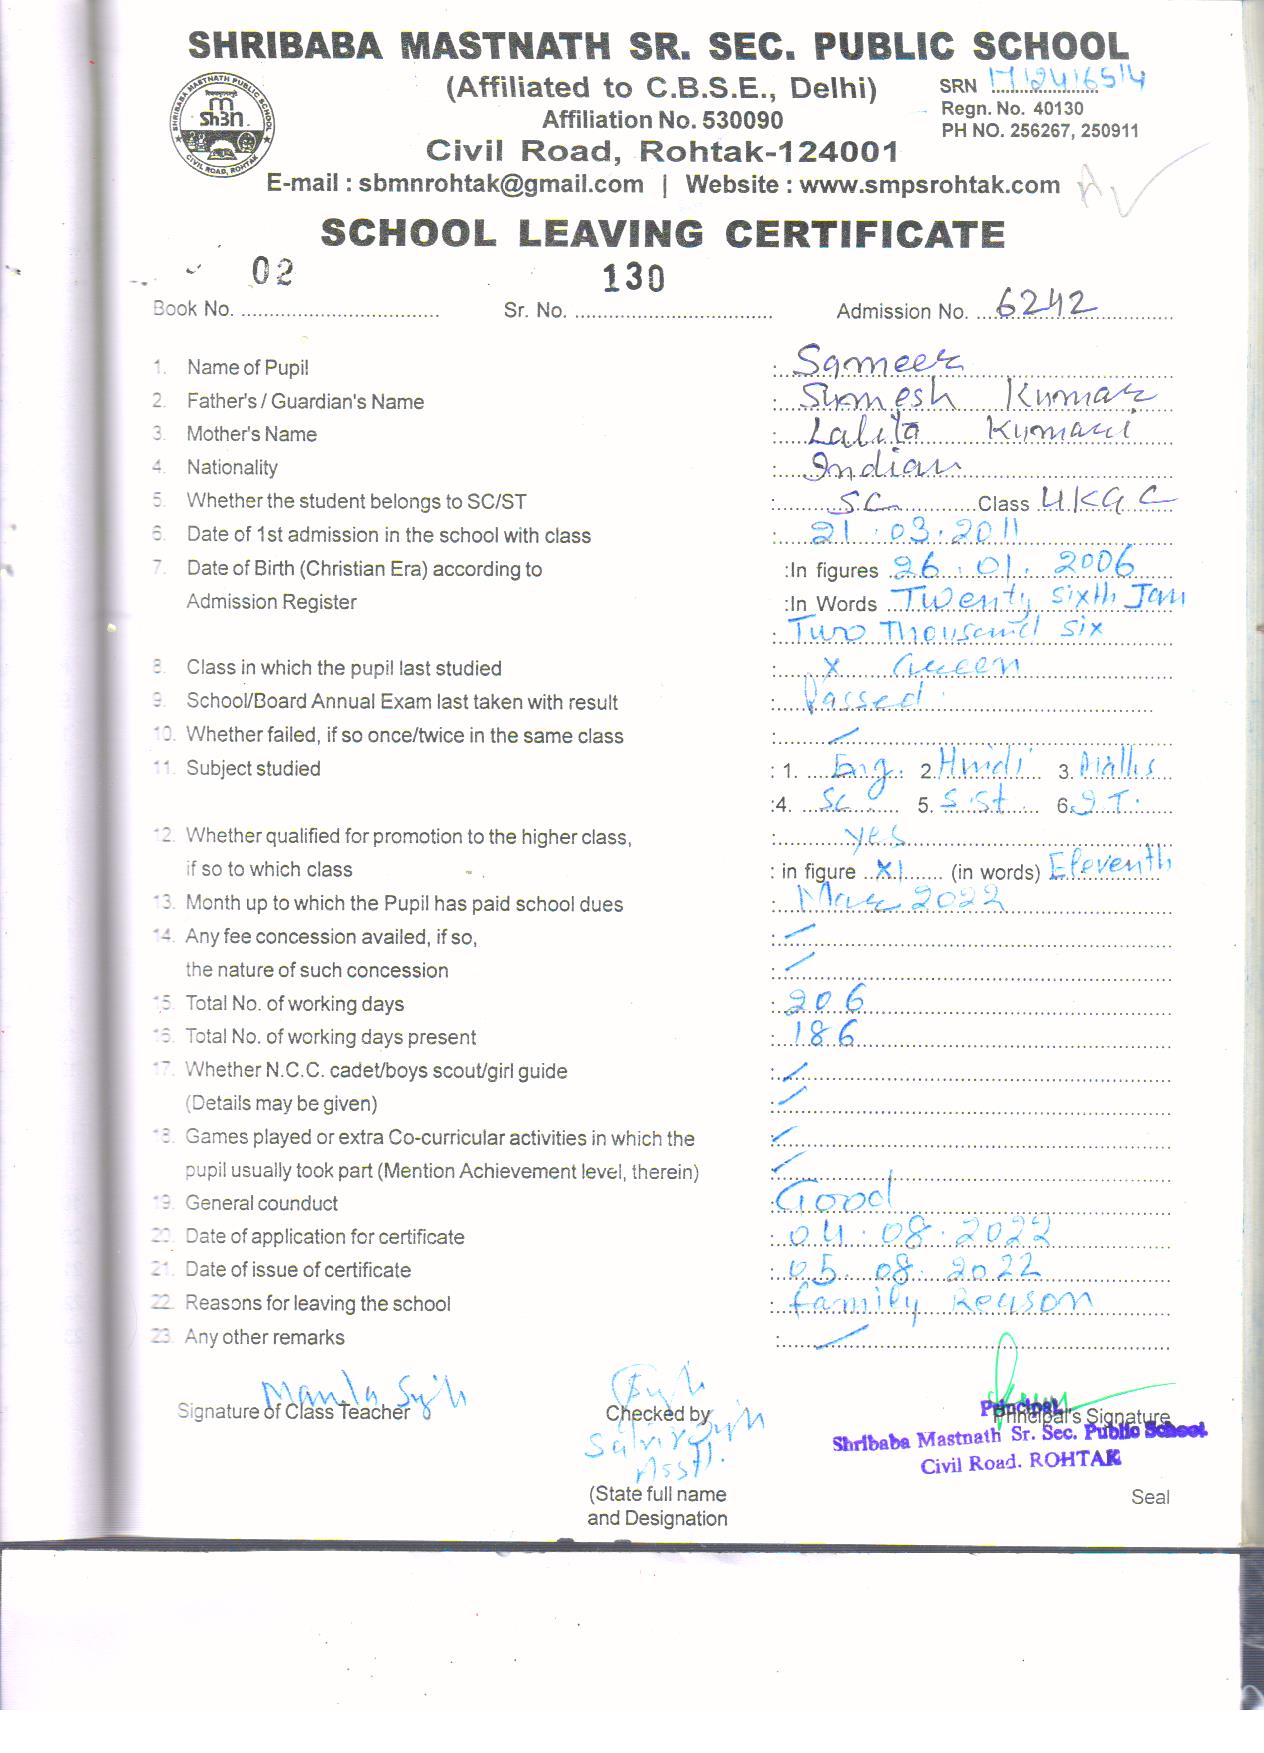 SHRIBABA MASTNATH SR. SEC. PUBLIC SCHOOL
(Affiliated to C.B.S.E., Delhi)
SRN
Affiliation No. 530090
Regn. No. 40130
PH NO. 256267, 250911
Civil Road, Rohtak-124001
E-mail : sbmnrohtak@gmail.com | Website : www.smpsrohtak.com
SCHOOL LEAVING CERTIFICATE
Book No. 02 Sr. No. 130 Admission No. 6242
1. Name of Pupil : Sameer
2. Father's / Guardian's Name : Kumar
3. Mother's Name : Lalita Kumari
4. Nationality : Indian
5. Whether the student belongs to SC/ST : SC Class UKG C
6. Date of 1st admission in the school with class : 21.03.2011
7. Date of Birth (Christian Era) according to :In figures 26.01.2006
Admission Register :In Words Twenty sixth Jan
: Two Thousand six
8. Class in which the pupil last studied : X Green
9. School/Board Annual Exam last taken with result : Passed
10. Whether failed, if so once/twice in the same class :
11. Subject studied : 1. Eng. 2. Hindi 3. Maths
:4. Sc. 5. S.St 6. I.T.
12. Whether qualified for promotion to the higher class, : yes
if so to which class : in figure XI (in words) Eleventh
13. Month up to which the Pupil has paid school dues : Mar 2022
14. Any fee concession availed, if so, :
the nature of such concession :
15. Total No. of working days : 206
16. Total No. of working days present : 186
17. Whether N.C.C. cadet/boys scout/girl guide :
(Details may be given) :
18. Games played or extra Co-curricular activities in which the :
pupil usually took part (Mention Achievement level, therein) :
19. General counduct : Good
20. Date of application for certificate : 04.08.2022
21. Date of issue of certificate : 05.08.2022
22. Reasons for leaving the school : family Reason
23. Any other remarks :
Signature of Class Teacher Checked by Principal's Signature
Principal
Shribaba Mastnath Sr. Sec. Public School
Civil Road. ROHTAK
(State full name Seal
and Designation